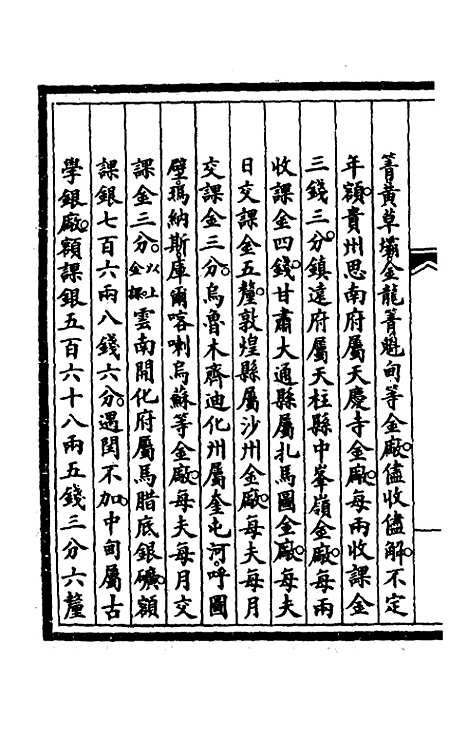 箐黃草壩金龍箐魁甸等金廠。儘收儘解。不定
年額。貴州思南府屬天慶寺金廠。每兩收課金
三錢三分。鎮遠府屬天柱縣中峯嶺金廠。每兩
收課金四錢。甘肅大通縣屬扎馬圖金廠。每夫
日交課金五釐。敦煌縣屬沙州金廠。每夫每月
交課金三分。烏魯木齊迪化州屬奎屯河。呼圖
壁。瑪納斯。庫爾喀喇烏蘇等金廠。每夫每月交
課金三分。以上金課雲南開化府屬馬腊底銀礦。額
課銀七百六兩八錢六分。遇閏不加。中甸屬古
學銀廠。額課銀五百六十八兩五錢三分六釐